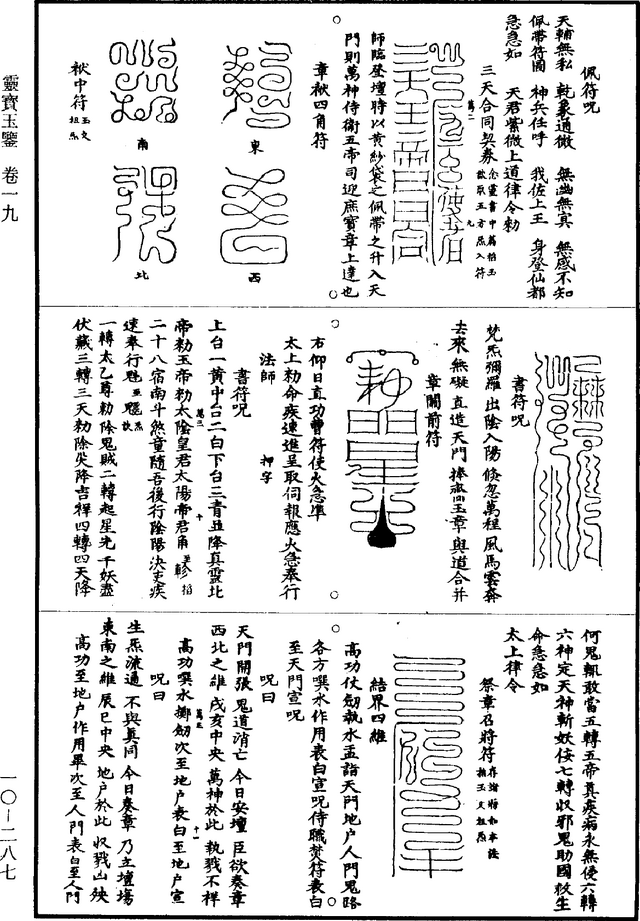 佩符呪
天輔無私　乾象通微　無幽無冥　無感不知
佩帶符圖　神兵任呼　我佐上王　身登仙都
急急如　天君紫微上道律令勑
三天合同契券
師臨登壇時以黃紗袋之佩帶之升入天
門則萬神侍衛五帝司迎庶寶章上達也
章袱四角符
東
南
西
北
袱中符
靈寶玉鑒　卷一九
書符呪
梵炁彌羅　出陰入陽　倏忽萬程　風馬雲奔
去來無礙　直造天門　捧奏玉章　與道合并
章關前符
右仰日直功曹符使火急準
太上勑命疾速進呈取伺報應火急奉行
法師　押字
書符呪
上台一黃中台二白下台三青並降真靈北
帝勑玉帝勑太陰皇君太陽帝君角
二十八宿南斗煞童隨吾後行陰陽決吏疾
速奉行魁
一轉太乙尊勑除鬼賊二轉起星光千妖盡
伏藏三轉三天勑除災降吉祥四轉四天降
何鬼輒敢當五轉五帝真疾病永無侵六轉
六神定天神斬妖佞七轉收邪鬼助國救生
命急急如
太上律令
祭章召將符
結界四維
高功仗劍執水盂詣天門地户人門鬼路
各方噀水作用表白宣呪侍職焚符表白
至天門宣呪
呪曰
天門開張　鬼道消亡　今日安壇　臣欲奏章
西北之維　戌亥中央　萬神於此　執戟不祥
高功噀水擲劍次至地户表白至地户宣
呪曰
生炁流通　不與真同　今日奏章　乃立壇場
東南之維　辰巳中央　地户於此　收戮凶殃
高功至地户作用畢次至人門表白至人門
一〇－二八七